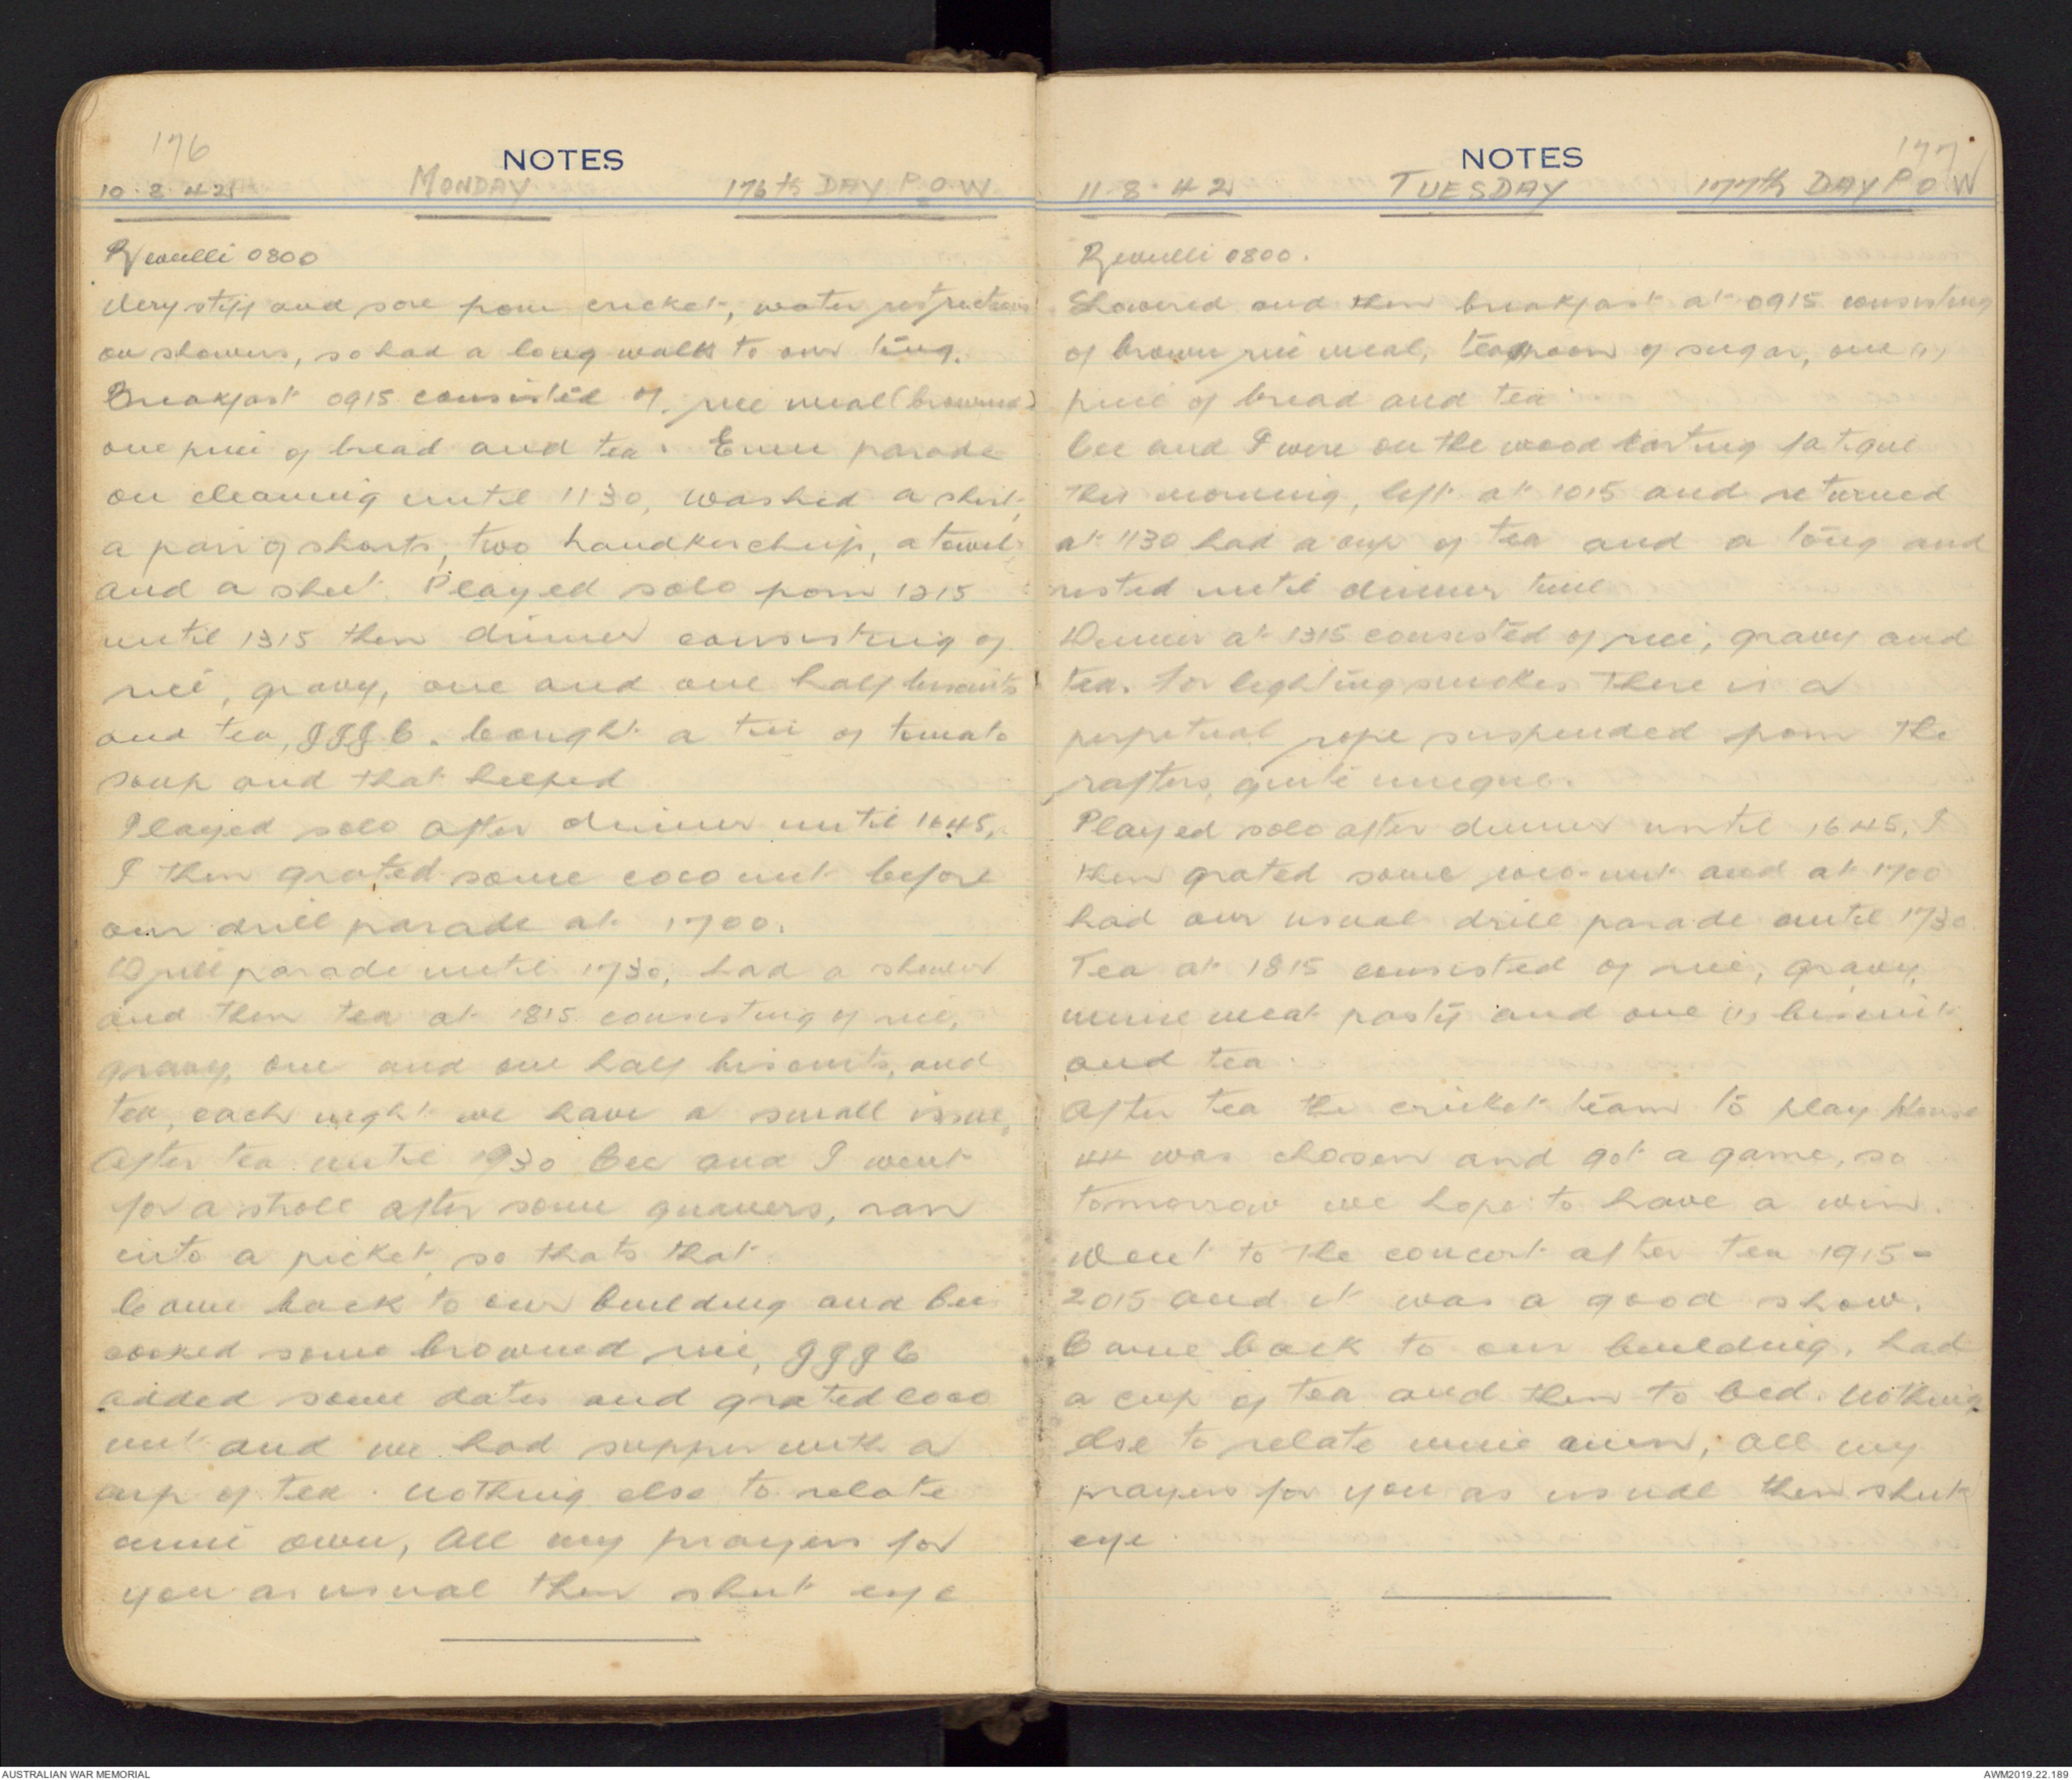 176
NOTES
10.8.42 MONDAY 176th DAY P.O.W
Reveille 0800
Very stiff and sore from cricket, water restrictions
on showers, so had a long walk to our
Breakfast 0915 consisted of rice meal (browned)
one piece of bread and tea. Emu parade
on cleaning until 1130, washed a shirt,
a pair of shorts, two handkerchiefs, a towel
and a sheet. Played solo from 1215
until 1315 then dinner consisting of
rice, gravy, one and one half biscuits
and tea, JJJC. bought a tin of tomato
soup and that helped
Played solo after dinner until 1645,
I then grated some coconut before
our drill parade at 1700.
Drill parade until 1730, had a shower
and then tea at 1815 consisting of rice,
gravy, one and one half biscuits, and
tea, each night we have a small issue,
After tea until 1930 Cec and I went
for a stroll after some guavers, ran
into a picket, so thats that.
Came back to our building and Cec
cooked some browned rice, JJJC
added some dates and grated coco
nut and we had supper with a
cup of tea. Nothing else to relate
mine own, All my prayers for
you as usual then shut eye
177
NOTES
11.8.42 TUESDAY 177th DAY P O W
Reveille 0800.
Showered and then breakfast at 0915 consisting
of brown rice meal, teaspoon of sugar, one (1)
piece of bread and tea
Cec and I were on the wood carting fatigue
this morning, left at 1015 and returned
at 1130 had a cup of tea and a long and
rested until dinner time
Dinner at 1315 consisted of rice, gravy and
tea. For lighting smokes there is a
perpetual rope suspended from the
rafters, quite unique.
Played solo after dinner until 1645, I
then grated some coco-nut and at 1700
had our usual drill parade until 1730.
Tea at 1815 consisted of rice, gravy,
mince meat pasty and one (1) biscuit
and tea.
After tea the cricket team to play House
44 was chosen and got a game, so
tomorrow we hope to have a win.
Went to the concert after tea 1915-
2015 and it was a good show.
Came back to our building, had
a cup of tea and then to bed. Nothing
else to relate mine own, all my
prayers for you as usual then shut
eye
AUSTRALIAN WAR MEMORIAL
AWM2019.22.189